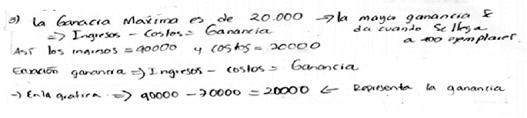 a) la Ganacia Maxima es de 20.000 → la mayor ganancia se
=> Ingresos - Costos = Ganancia da cuando se llega
Así los ingresos = 90000 y costos = 70000 a 400 ejemplares.
Ecuación ganancia => Ingresos - costos = Ganancia
→ En la grafica => 90000 - 70000 = 20000 ← Representa la ganancia